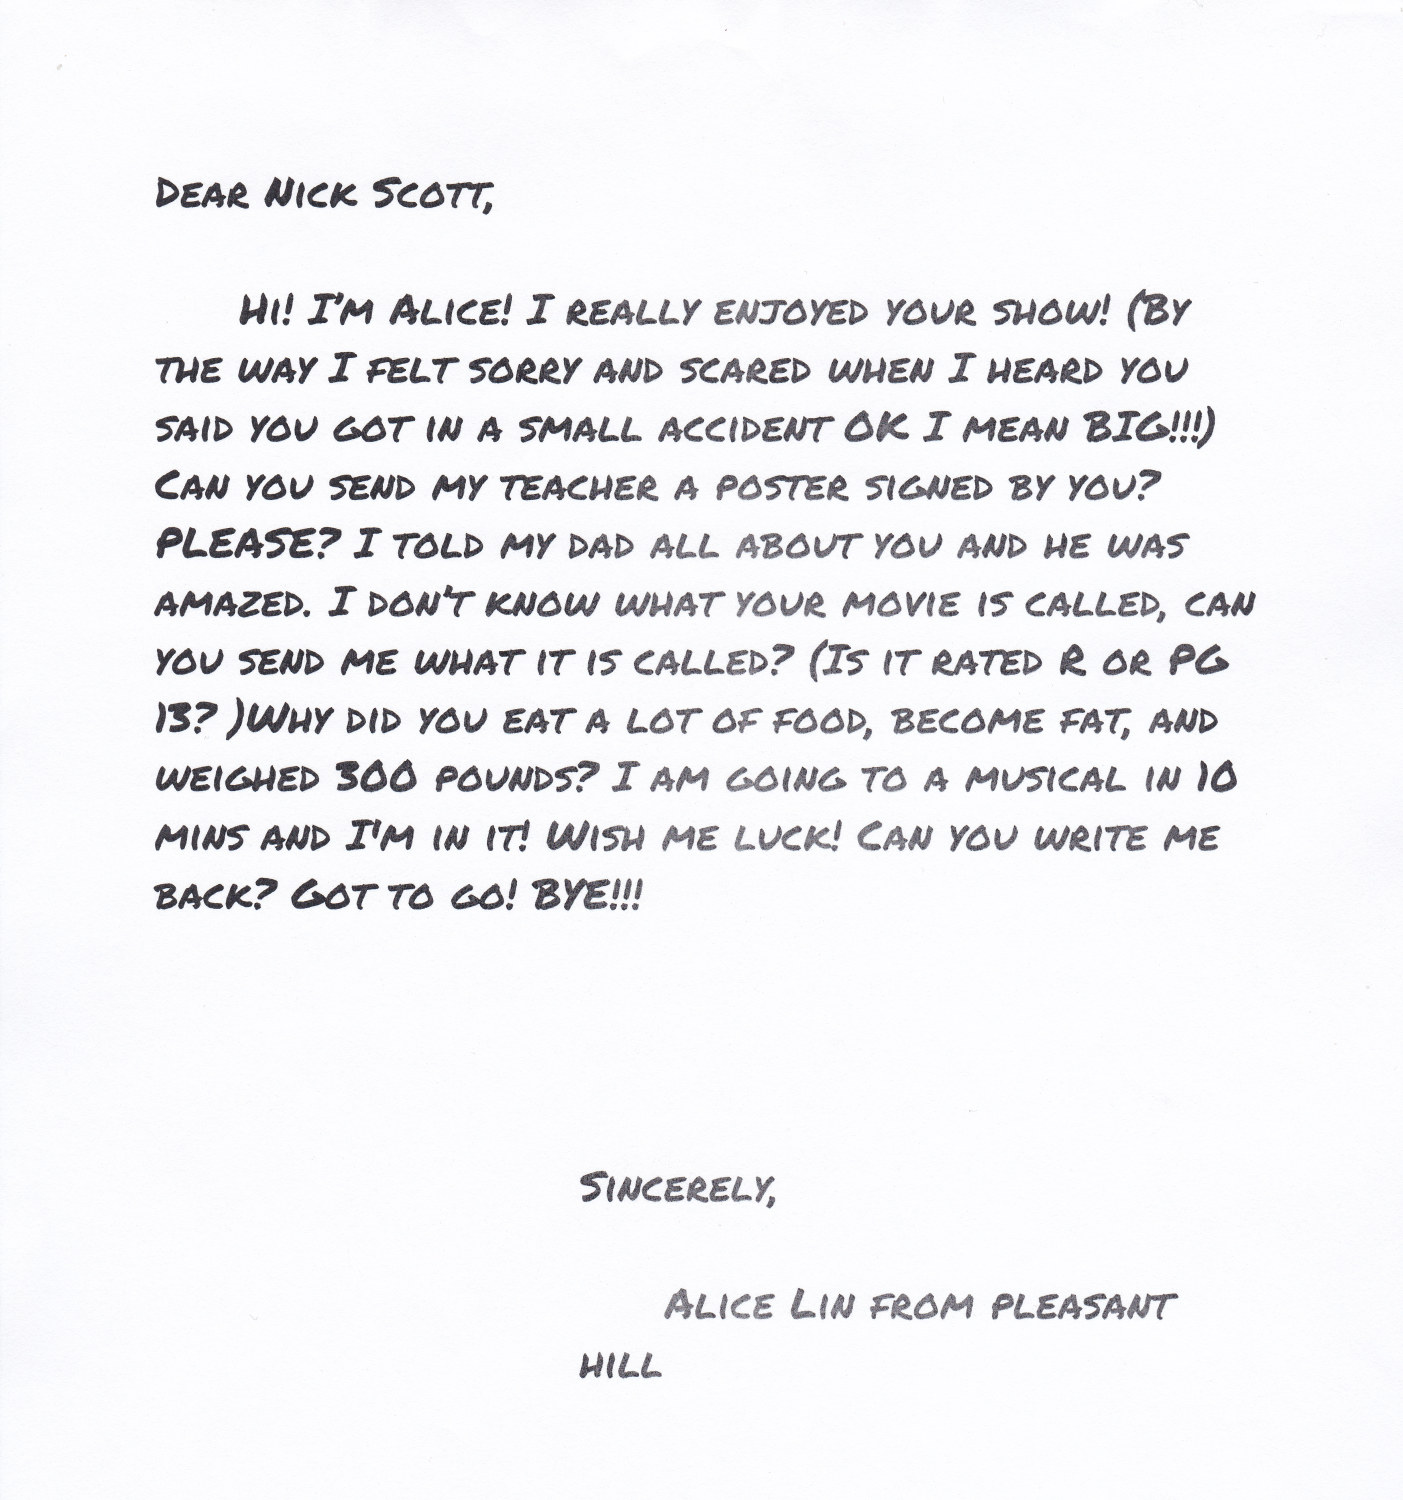 Dear Nick Scott,
Hi! I'm Alice! I really enjoyed your show! (By
the way I felt sorry and scared when I heard you
said you got in a small accident OK I mean BIG!!!)
Can you send my teacher a poster signed by you?
PLEASE? I told my dad all about you and he was
amazed. I don't know what your movie is called, can
you send me what it is called? (Is it rated R or PG
13? )Why did you eat a lot of food, become fat, and
weighed 300 pounds? I am going to a musical in 10
mins and I'm in it! Wish me luck! Can you write me
back? Got to go! BYE!!!
Sincerely,
Alice Lin from pleasant
hill